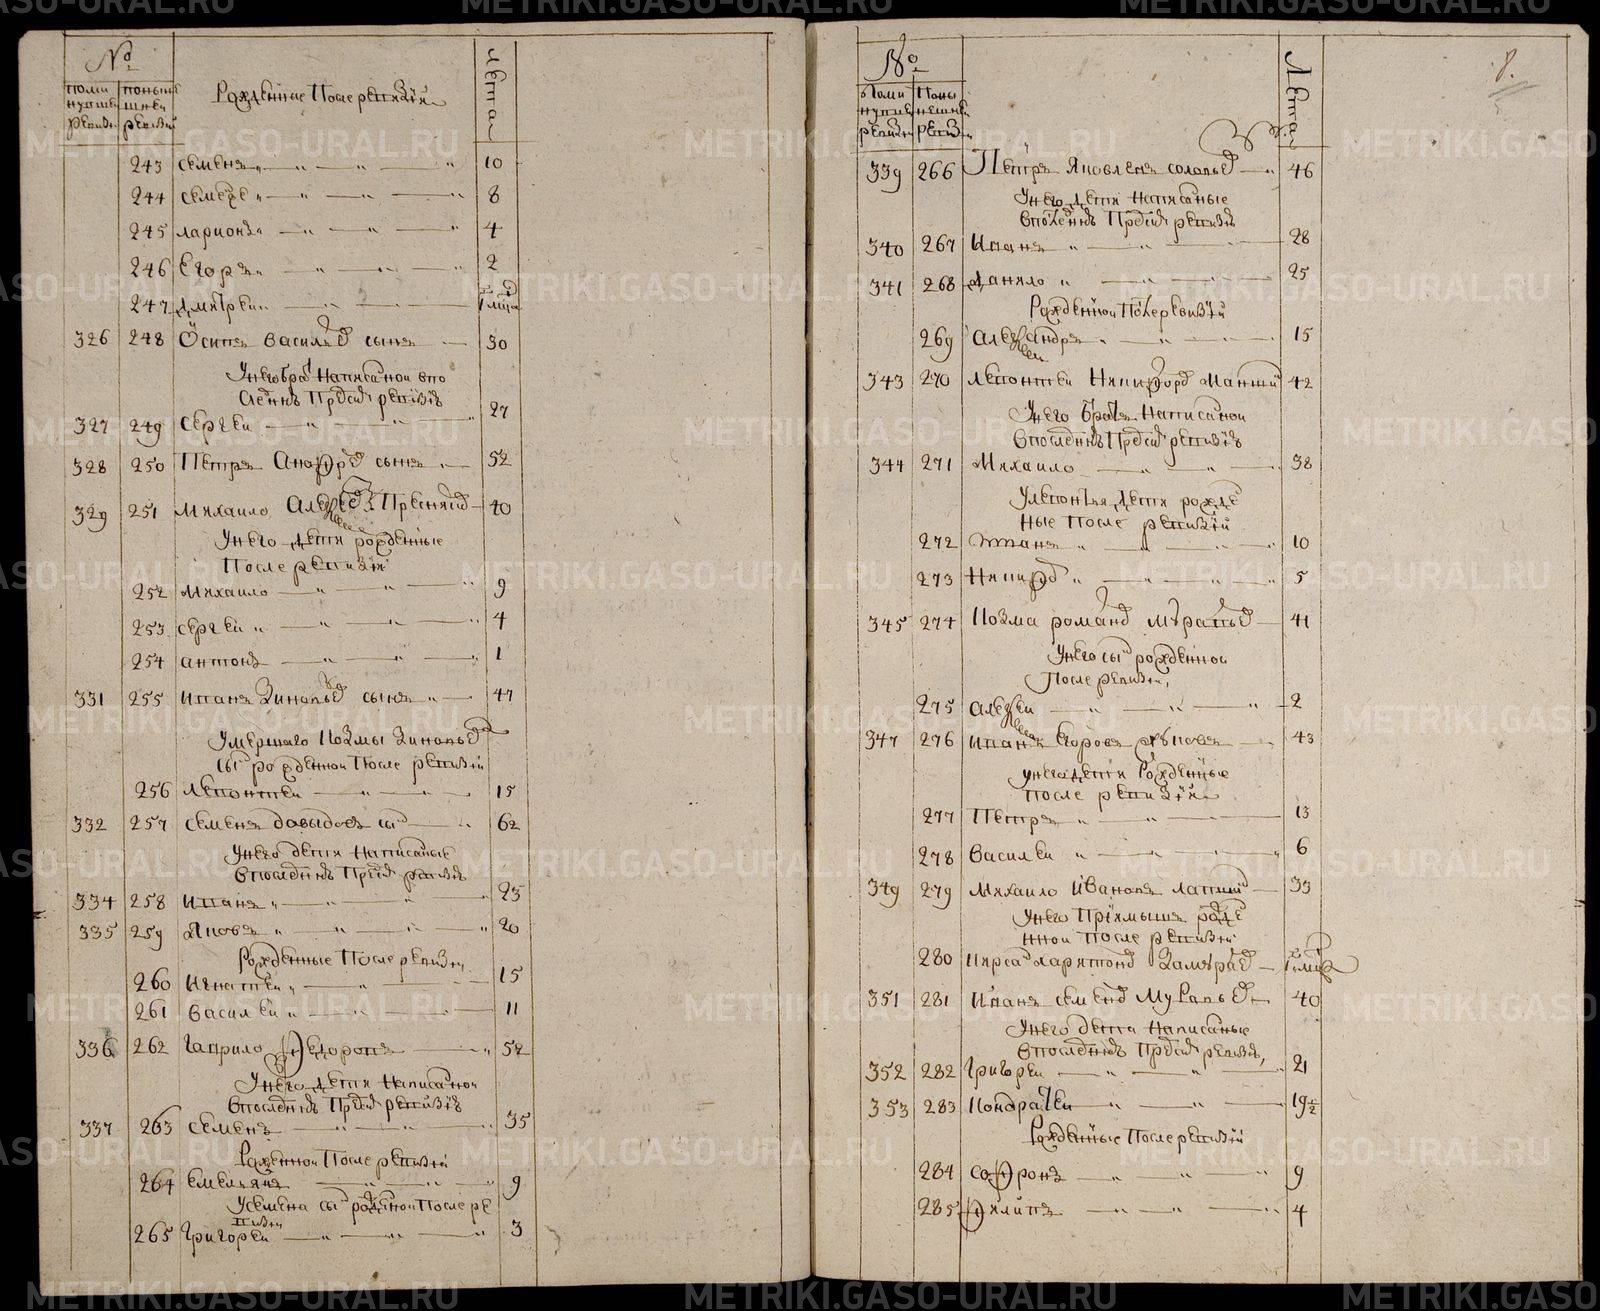 №
поми
нупше
ревизи
поныне
шнеи
ревизiи
Рожденные После ревизiи
Лета
243 Семенъ 10
244 8
245 Ларионъ 4
246 Егоръ 2
247 Дмитреи
326 248 Осипъ Васильев сынъ 30
У него брат Написанои впо
следней Пред сим ревизiи
327 249 Сергеи 27
328 250 Петръ сынъ 52
329 251 Михаило 40
У него дети рожденные
После ревизiи
252 Михаило 9
253 Сергеи 4
254 Антонъ 1
331 255 Иванъ Зиновьев сынъ 47
Умершаго Козмы Зиновьева
сын рожденнои После ревизiи
256 Левонтеи 15
332 257 Семенъ Давыдовъ сын 62
У него дети Написаные
в последней Пред сим ревизiи
334 258 Иванъ 23
335 259 Яковъ 20
Рожденные После ревизiи
260 Игнатеи 15
261 Василеи 11
336 262 Гаврило Федоровъ 52
У него дети Написанои
в последней Пред сим ревизiи
337 263 Семенъ 35
Рожденнои После ревизiи
264 Емельянъ 9
У Семена сын рожденнои После ре
визiи
265 Григореи 3
8.
№
Поми
нупшеи
ревизи
Поны
нешнеи
ревизи
Лета
339 266 Петръ Яковлевъ 46
У него дети Написаные
в последней Пред сим ревизiи
340 267 Иванъ 28
341 268 Данило 25
Рожденнои После ревизiи
269 Александръ 15
343 270 Левонтеи Никифоров 42
У него братъ Написанои
в последней Пред сим ревизiи
344 271 Михаило 38
У Левонтья дети рожде
ные После ревизiи
272 Иванъ 10
273 Никифор 5
345 274 Козма Романов 41
У него сын рожденнои
После ревизiи,
275 Алексеи 2
347 276 Иванъ Егоровъ 43
у него дети Рожденные
после ревизiи
277 Петръ 13
278 Василеи 6
349 279 Михаило Ивановъ 33
У него Прiемышъ рожде
ннои После ревизiи
280
351 281 Иванъ Семенов 40
У него дети Написаные
в последней Пред сим ревизiи,
352 282 Григореи 21
353 283 Кондратеи 19½
Рожденные После ревизiи
284 Софронъ 9
285 Филипъ 4
METRIKI.GASO-URAL.RU